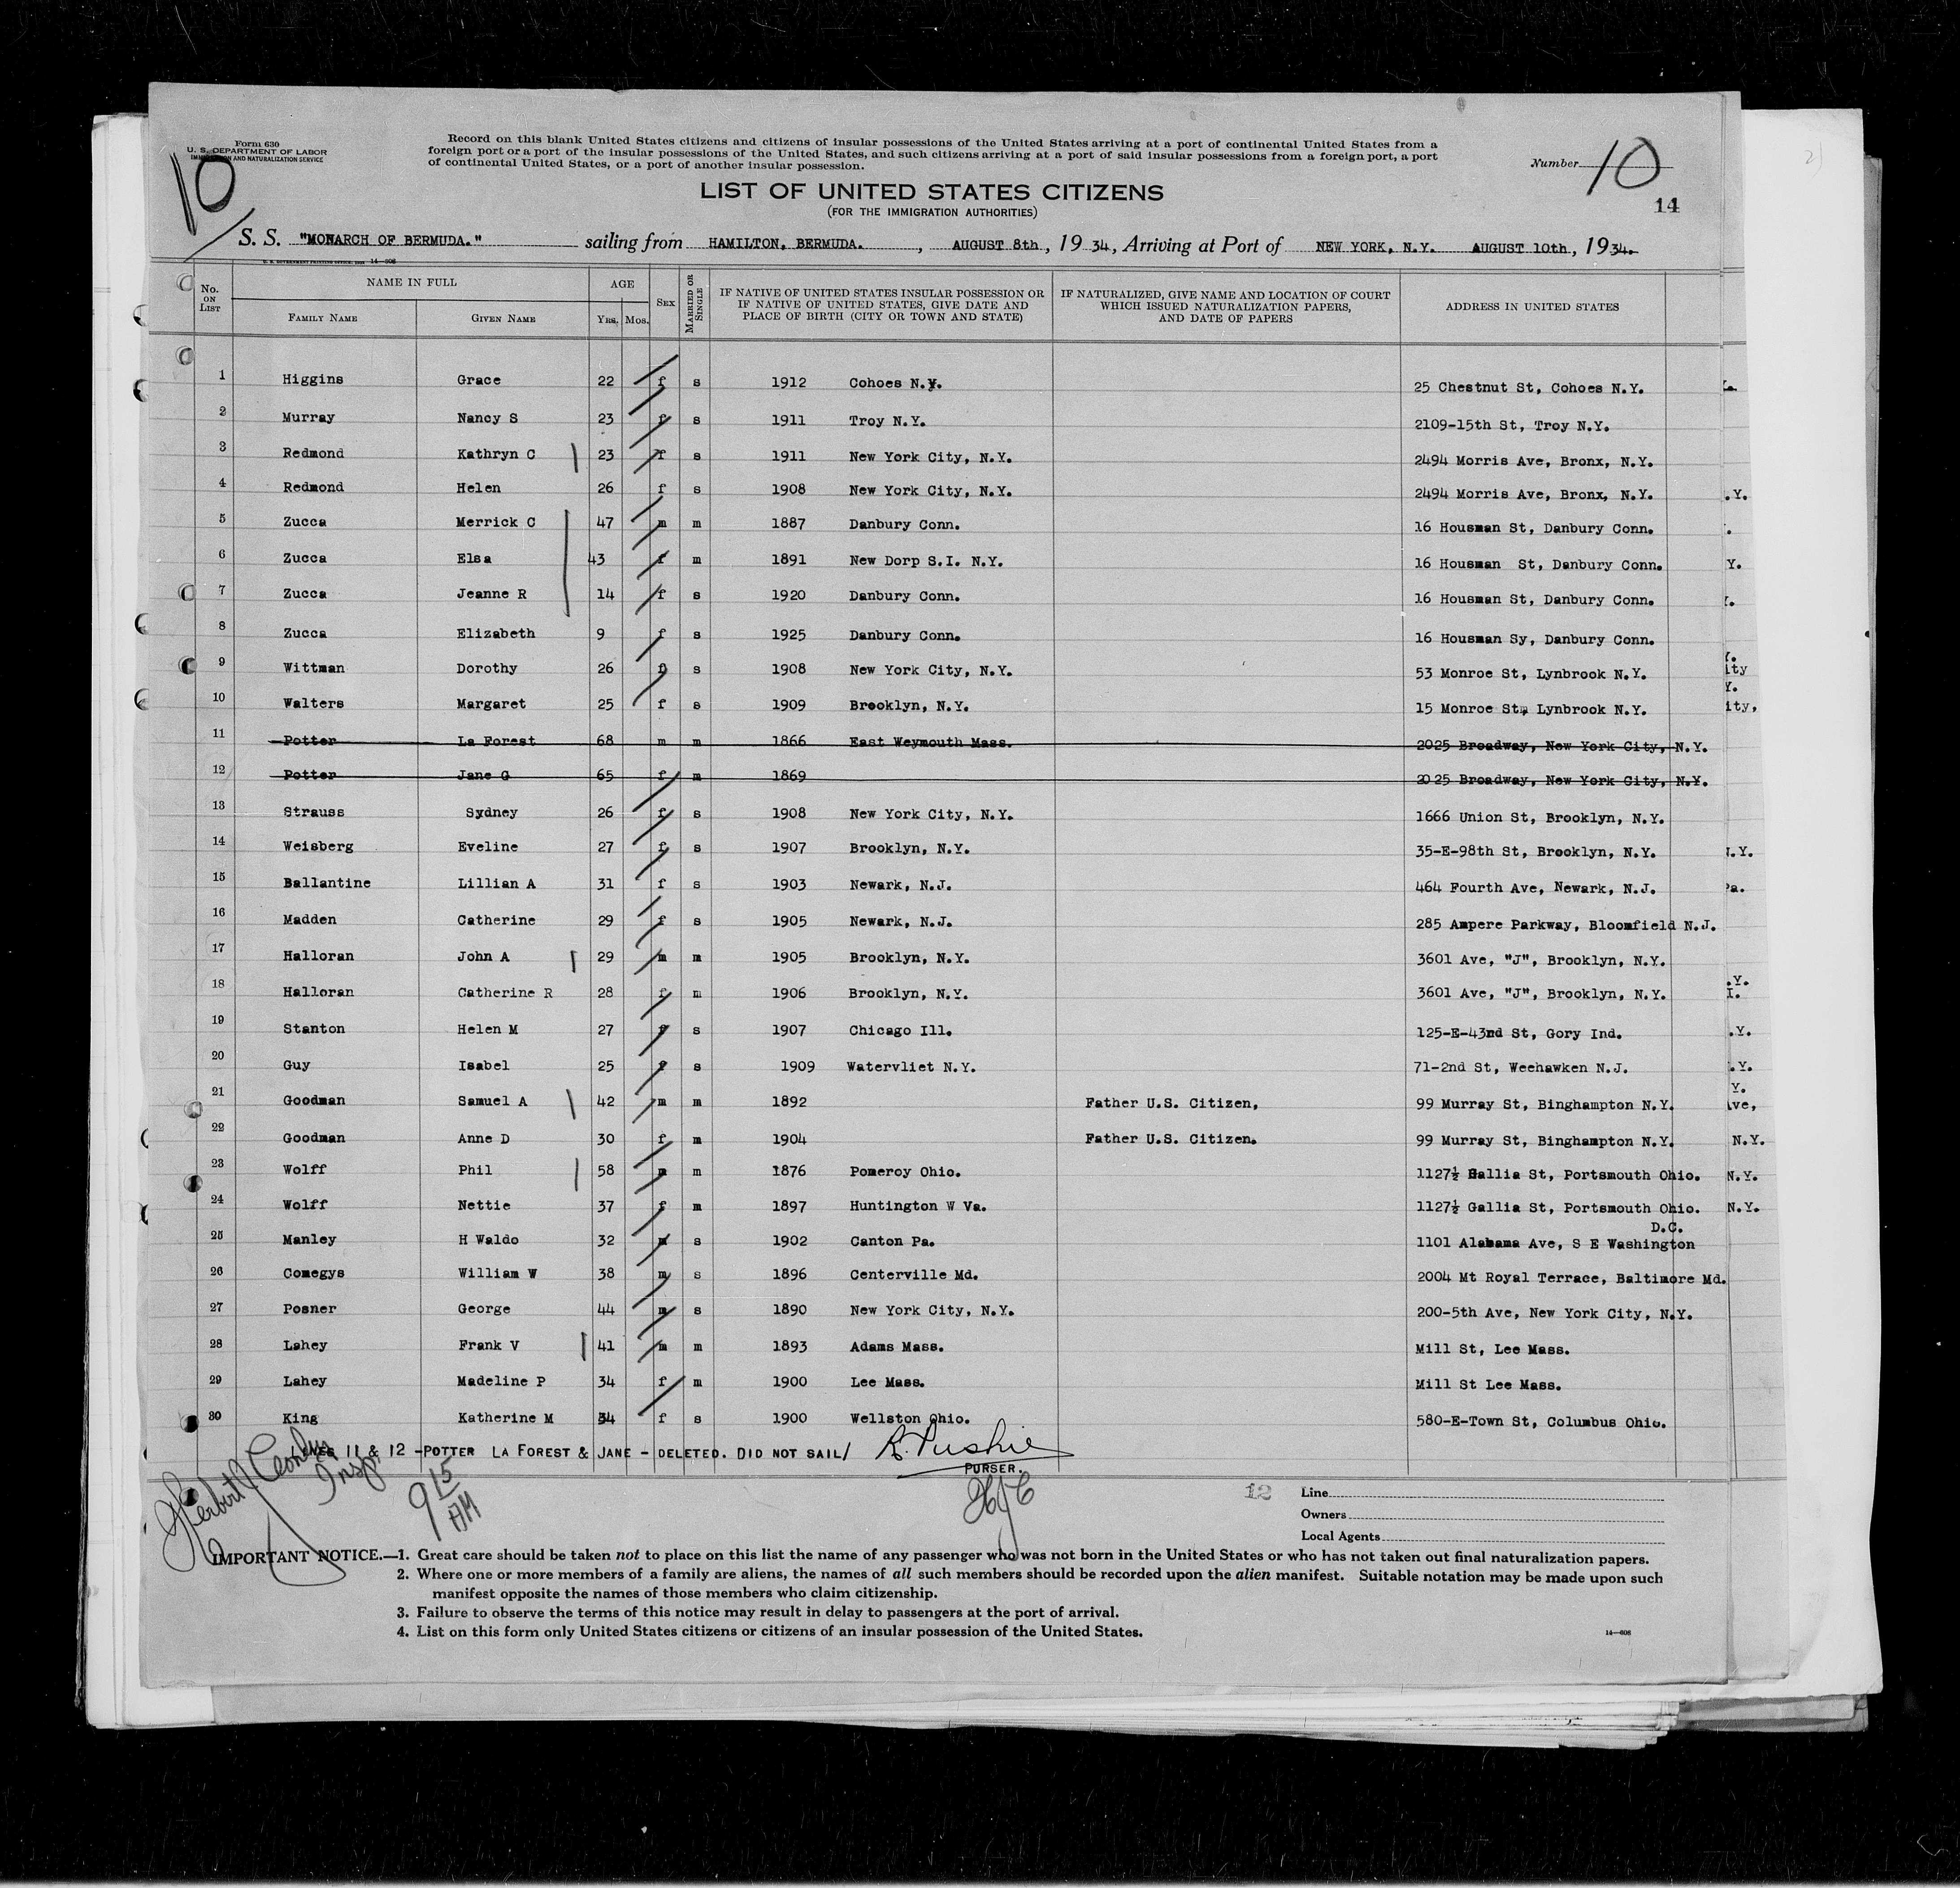 Form 630
U. S. DEPARTMENT OF LABOR
IMMIGRATION AND NATURALIZATION SERVICE
10
Record on this blank United States citizens and citizens of insular possessions of the United States arriving at a port of continental United States from a
foreign port or a port of the insular possessions of the United States, and such citizens arriving at a port of said insular possessions from a foreign port, a port
of continental United States, or a port of another insular possession.
Number 10
LIST OF UNITED STATES CITIZENS
(FOR THE IMMIGRATION AUTHORITIES)
14
S. S. "MONARCH OF BERMUDA." sailing from HAMILTON, BERMUDA. , AUGUST 8th , 19 34, Arriving at Port of NEW YORK, N.Y. AUGUST 10th , 19 34.
U. S. GOVERNMENT PRINTING OFFICE 14—606
No. ON LIST NAME IN FULL FAMILY NAME GIVEN NAME AGE YRS. MOS. SEX MARRIED OR SINGLE IF NATIVE OF UNITED STATES INSULAR POSSESSION OR IF NATIVE OF UNITED STATES, GIVE DATE AND PLACE OF BIRTH (CITY OR TOWN AND STATE) IF NATURALIZED, GIVE NAME AND LOCATION OF COURT WHICH ISSUED NATURALIZATION PAPERS, AND DATE OF PAPERS ADDRESS IN UNITED STATES
1 Higgins Grace 22 f s 1912 Cohoes N.Y. 25 Chestnut St, Cohoes N.Y.
2 Murray Nancy S 23 f s 1911 Troy N.Y. 2109-15th St, Troy N.Y.
3 Redmond Kathryn C 23 f s 1911 New York City, N.Y. 2494 Morris Ave, Bronx, N.Y.
4 Redmond Helen 26 f s 1908 New York City, N.Y. 2494 Morris Ave, Bronx, N.Y. .Y.
5 Zucca Merrick C 47 m m 1887 Danbury Conn. 16 Housman St, Danbury Conn.
6 Zucca Elsa 43 f m 1891 New Dorp S.I. N.Y. 16 Housman St, Danbury Conn. Y.
7 Zucca Jeanne R 14 f s 1920 Danbury Conn. 16 Housman St, Danbury Conn.
8 Zucca Elizabeth 9 f s 1925 Danbury Conn. 16 Housman Sy, Danbury Conn.
9 Wittman Dorothy 26 f s 1908 New York City, N.Y. 53 Monroe St, Lynbrook N.Y. ity
Y.
10 Walters Margaret 25 f s 1909 Brooklyn, N.Y. 15 Monroe St, Lynbrook N.Y. ity,
11 Potter La Forest 68 m m 1866 East Weymouth Mass. 2025 Broadway, New York City, N.Y.
12 Potter Jane G 65 f m 1869 2025 Broadway, New York City, N.Y.
13 Strauss Sydney 26 f s 1908 New York City, N.Y. 1666 Union St, Brooklyn, N.Y.
14 Weisberg Eveline 27 f s 1907 Brooklyn, N.Y. 35-E-98th St, Brooklyn, N.Y. N.Y.
15 Ballantine Lillian A 31 f s 1903 Newark, N.J. 464 Fourth Ave, Newark, N.J. Pa.
16 Madden Catherine 29 f s 1905 Newark, N.J. 285 Ampere Parkway, Bloomfield N.J.
17 Halloran John A 29 m m 1905 Brooklyn, N.Y. 3601 Ave, "J", Brooklyn, N.Y.
.Y.
18 Halloran Catherine R 28 f m 1906 Brooklyn, N.Y. 3601 Ave, "J", Brooklyn, N.Y. I.
19 Stanton Helen M 27 f s 1907 Chicago Ill. 125-E-43nd St, Gory Ind. .Y.
20 Guy Isabel 25 f s 1909 Watervliet N.Y. 71-2nd St, Weehawken N.J. .Y.
Y.
21 Goodman Samuel A 42 m m 1892 Father U.S. Citizen, 99 Murray St, Binghampton N.Y. Ave,
22 Goodman Anne D 30 f m 1904 Father U.S. Citizen. 99 Murray St, Binghampton N.Y. N.Y.
23 Wolff Phil 58 m m 1876 Pomeroy Ohio. 1127½ Gallia St, Portsmouth Ohio. N.Y.
24 Wolff Nettie 37 f m 1897 Huntington W Va. 1127½ Gallia St, Portsmouth Ohio. N.Y.
D.C.
25 Manley H Waldo 32 m s 1902 Canton Pa. 1101 Alabama Ave, S E Washington
26 Comegys William W 38 m s 1896 Centerville Md. 2004 Mt Royal Terrace, Baltimore Md.
27 Posner George 44 m s 1890 New York City, N.Y. 200-5th Ave, New York City, N.Y.
28 Lahey Frank V 41 m m 1893 Adams Mass. Mill St, Lee Mass.
29 Lahey Madeline P 34 f m 1900 Lee Mass. Mill St Lee Mass.
30 King Katherine M 34 f s 1900 Wellston Ohio. 580-E-Town St, Columbus Ohio.
LINES 11 & 12 - POTTER LA FOREST & JANE - DELETED. DID NOT SAIL/ R. Pushie
PURSER.
Herbert J Insp.
9 15 AM
HJC
12
Line
Owners
Local Agents
IMPORTANT NOTICE.—1. Great care should be taken not to place on this list the name of any passenger who was not born in the United States or who has not taken out final naturalization papers.
2. Where one or more members of a family are aliens, the names of all such members should be recorded upon the alien manifest. Suitable notation may be made upon such
manifest opposite the names of those members who claim citizenship.
3. Failure to observe the terms of this notice may result in delay to passengers at the port of arrival.
4. List on this form only United States citizens or citizens of an insular possession of the United States.
14—606